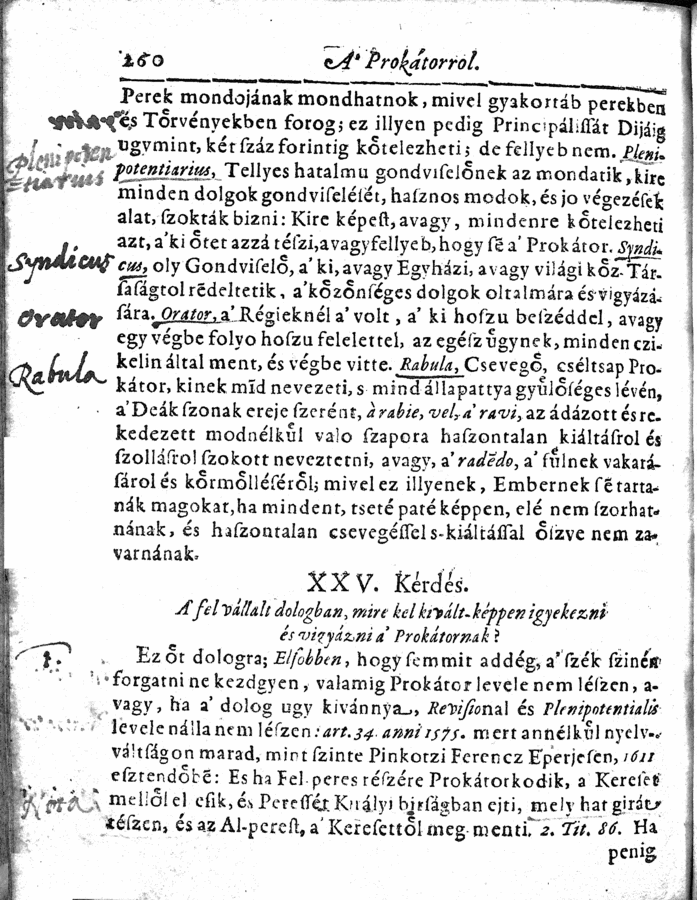 260 A' Prokátorrol.
Perek mondojának mondhatnok, mivel gyakortáb perekben
és Tŏrvényekben forog; ez illyen pedig Principáliſſát Dijáig
ugymint, két ſzáz forintig kŏtelezheti; de fellyeb nem. Pleni-
Plenipoten
tiarius
potentiarius, Tellyes hatalmu gondviſelŏnek az mondatik, kire
minden dolgok gondviſeléſét, haſznos modok, és jo végezéſek
alat, ſzokták bizni: Kire képeſt, avagy, mindenre kŏtelezheti
azt, a' ki ŏtet azzá téſzi, avagy fellyeb, hogy ſē a' Prokátor. Syndi-
Syndicus
cus, oly Gondviſelŏ, a' ki, avagy Egyházi, avagy világi kŏz-Tár-
ſaſágtol rēdeltetik, a' kŏzŏnſéges dolgok oltalmára és vigyázá-
Orator
ſára. Orator, a' Régieknél a' volt, a' ki hoſzu beſzéddel, avagy
egy végbe folyo hoſzu felelettel, az egéſz ŭgynek, minden czi-
Rabula
kelin által ment, és végbe vitte. Rabula, Csevegŏ, cséltsap Pro-
kátor, kinek mīd nevezeti, s mind állapattya gyŭlŏſéges lévén,
a' Deák ſzonak ereje ſzerént, à rabie, vel, a' ravi, az ádázott és re-
kedezett modnélkŭl valo ſzapora haſzontalan kiáltásrol és
ſzollásrol ſzokott neveztetni, avagy, a' radēdo, a' fŭlnek vakará-
ſárol és kŏrmŏlléſérŏl; mivel ez illyenek, Embernek ſē tarta-
nák magokat, ha mindent, tseté paté képpen, elé nem ſzorhat-
nának, és haſzontalan csevegéſſel s-kiáltáſſal ŏſzve nem za-
varnának.
XXV. Kérdés.
A' fel vállalt dologban, mire kel kivált-képpen igyekezni
és vigyázni a' Prokátornak?
1.
Ez ŏt dologra; Elſŏbben, hogy ſemmit addég, a' ſzék ſzinén
forgatni ne kezdgyen, valamig Prokátor levele nem léſzen, a-
vagy, ha a' dolog ugy kivánnya, Reviſional és Plenipotentialis
levele nálla nem léſzen: art. 34. anni 1575. mert annélkŭl nyelv-
váltſágon marad, mint ſzinte Pinkotzi Ferencz Eperjeſen, 1611
eſztendŏbē: Es ha Fel peres réſzére Prokátorkodik, a Kereſet
Nota
mellŏl el eſik, és Pereſſét Királyi birſágban ejti, mely hat girát
téſzen, és az Al-pereſt, a' Kereſettŏl meg menti. 2. Tit. 86. Ha
penig